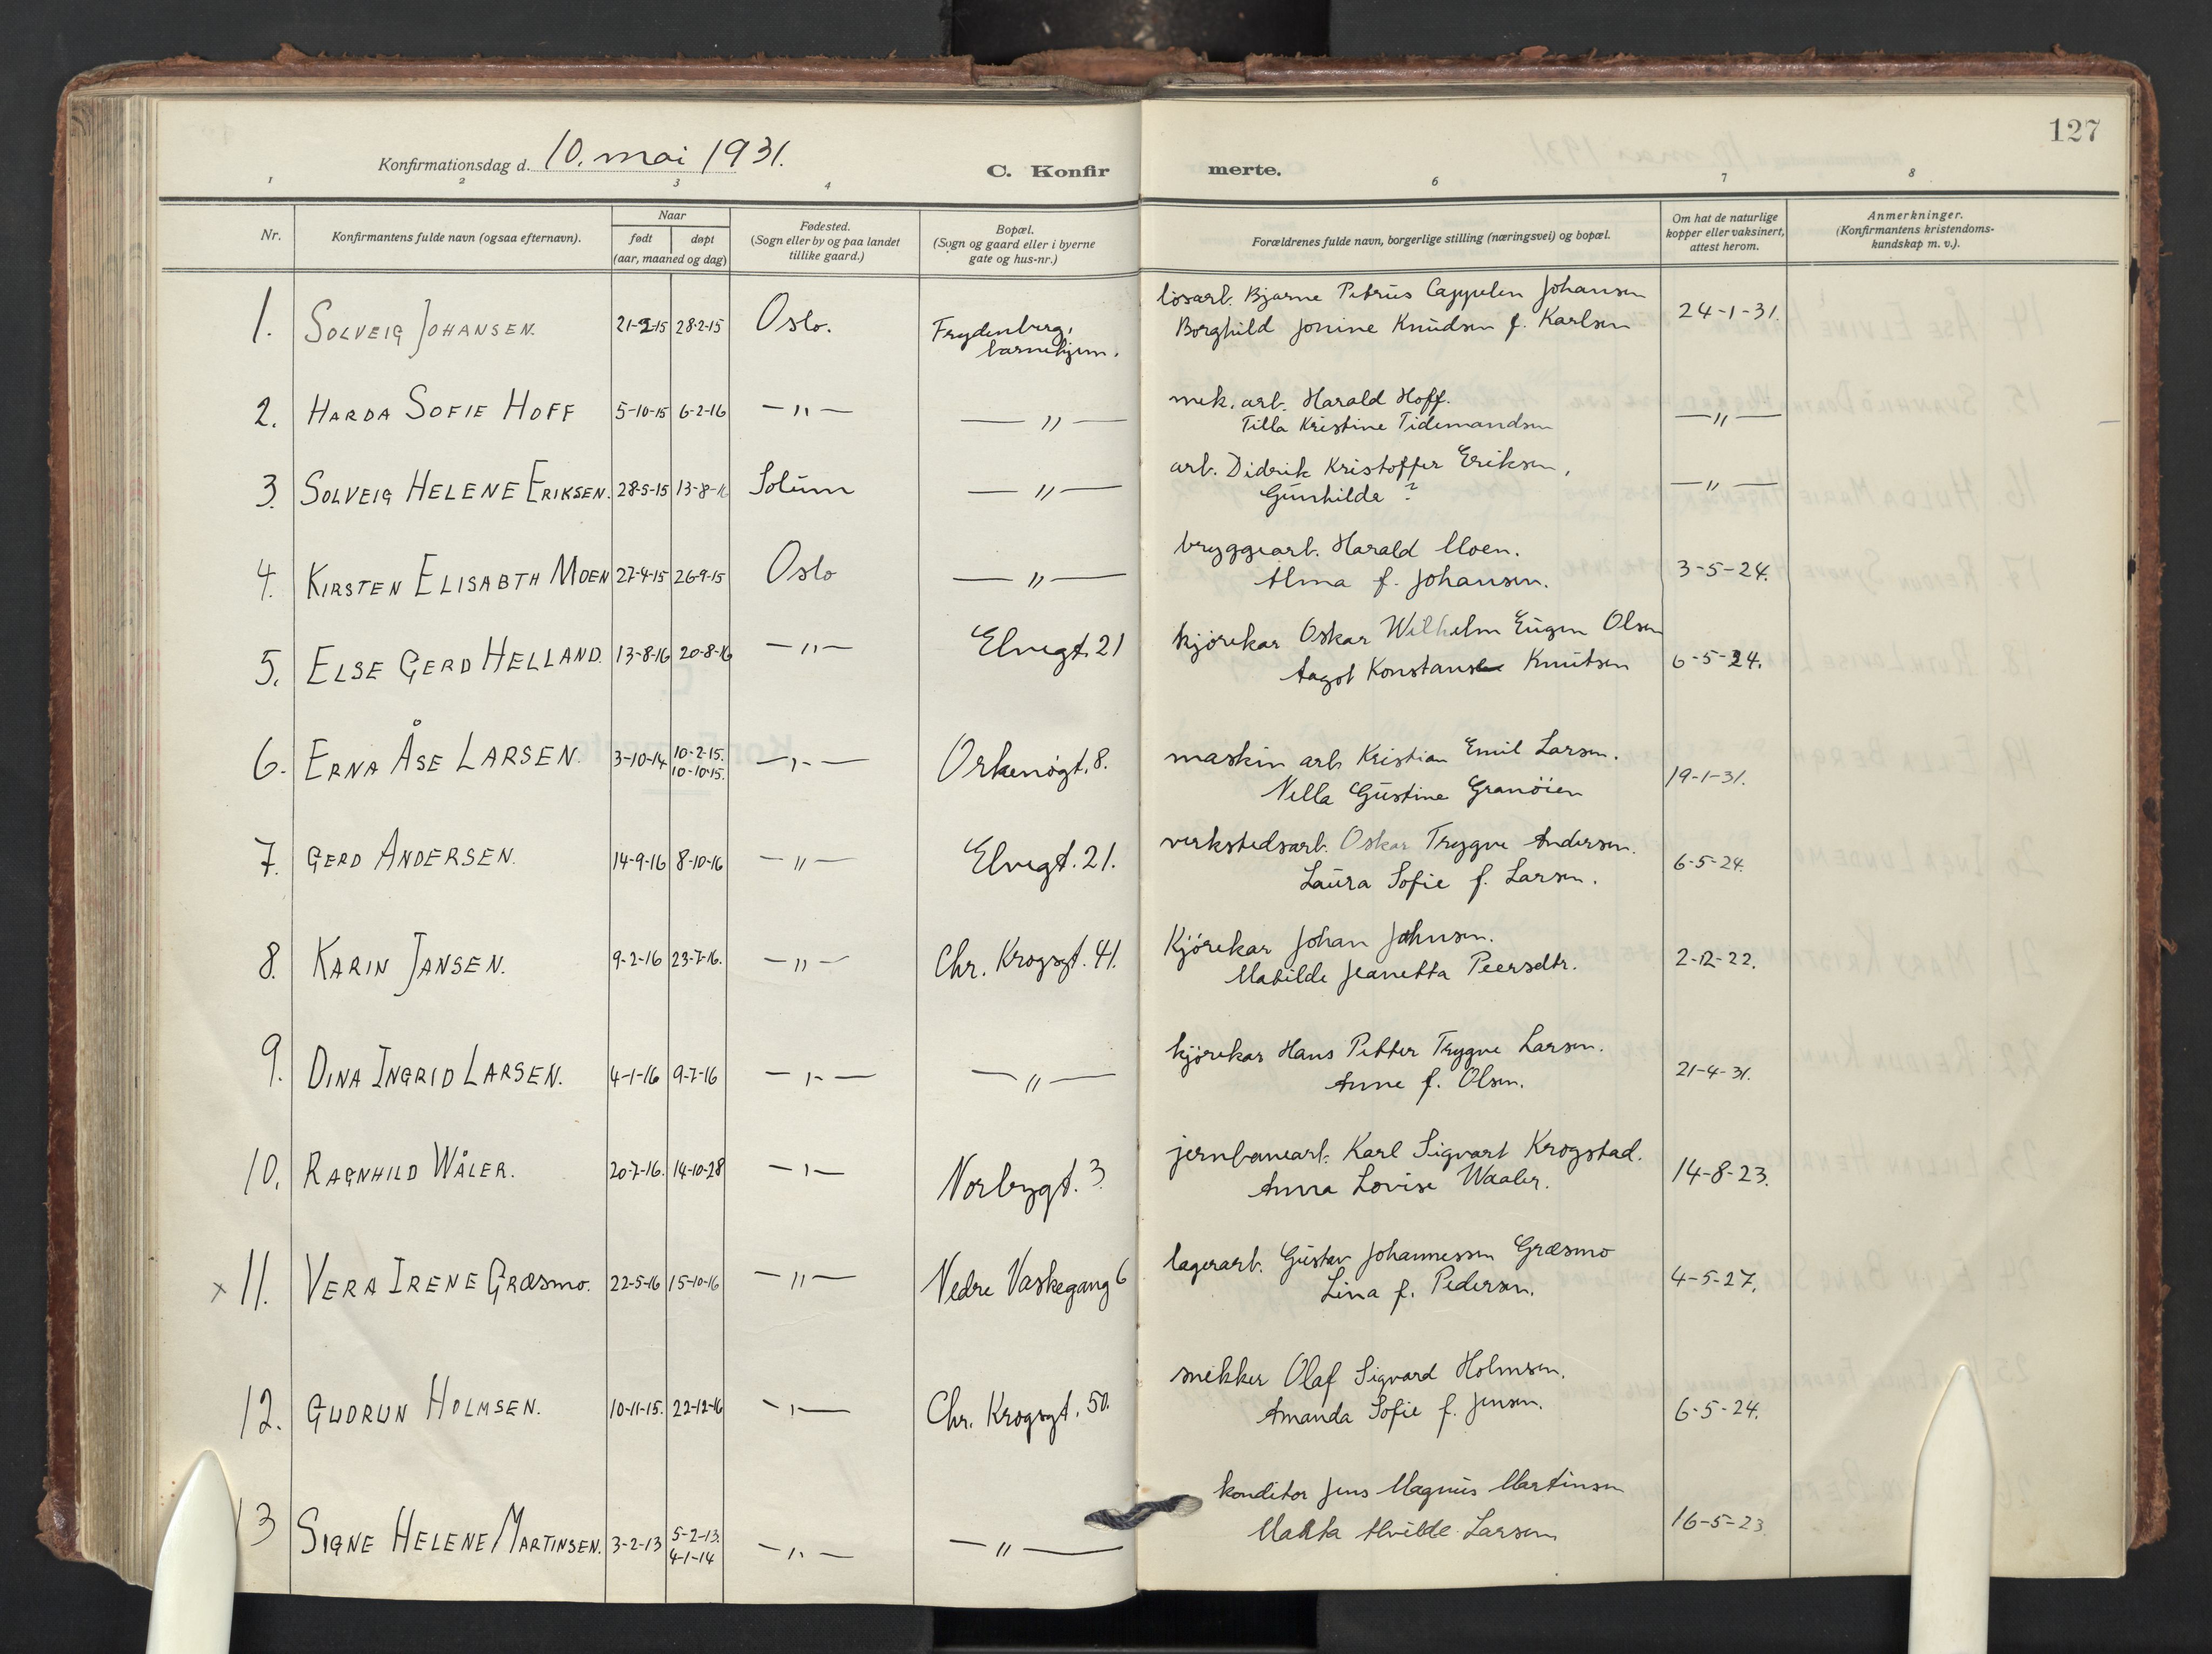 127
Konfirmationsdag d. 10. mai 1931.
C. Konfir merte.
1 2 3 4 6 7 8
Nr.
Konfirmantens fulde navn (ogsaa efternavn).
Naar
født døpt
(aar, maaned og dag)
Fødested.
(Sogn eller by og paa landet
tillike gaard.)
Bopæl.
(Sogn og gaard eller i byerne
gate og hus-nr.)
Forældrenes fulde navn, borgerlige stilling (næringsvei) og bopæl.
Om hat de naturlige
kopper eller vaksinert,
attest herom.
Anmerkninger.
(Konfirmantens kristendoms-
kundskap m. v.).
1. SOLVEIG JOHANSEN. 21-2-15 28-2-15 Oslo. Frydenberg,
barnehjem.
løsarb. Bjarne Petrus Cappelen Johansen
Borghild Jonine Knudsen f. Karlsen
24-1-31.
2. HARDA SOFIE HOFF 5-10-15 6-2-16 —"— —"—
mek. arb. Harald Hoff.
Tilla Kristine Tidemandsen
—"—
3. SOLVEIG HELENE ERIKSEN. 28-5-15 13-8-16 Solum —"—
arb. Didrik Kristoffer Eriksen,
Gunhilde ?
—"—
4. KIRSTEN ELISABTH MOEN 27-4-15 26-9-15 Oslo —"—
bryggearb. Harald Moen.
Alma f. Johansen.
3-5-24.
5. ELSE GERD HELLAND. 13-8-16 20-8-16 —"— Elvegt. 21
kjørekar Oskar Wilhelm Eugen Olsen
Aagot Konstanse Knutsen
6-5-24.
6. ERNA ÅSE LARSEN. 3-10-14 10-2-15.
10-10-15.
—"— Orkenøgt. 8.
maskin arb Kristian Emil Larsen.
Nella Gustine Granöien
19-1-31.
7. GERD ANDERSEN. 14-9-16 8-10-16 —"— Elvegt. 21.
verkstedsarb. Oskar Trygve Andersen.
Laura Sofie f. Larsen.
6-5-24.
8. KARIN JANSEN. 9-2-16 23-7-16. —"— Chr. Krogsgt. 41.
Kjørekar Johan Johnsen.
Matilde Jeanetta Peersdtr.
2-12-22.
9. DINA INGRID LARSEN. 4-1-16 9-7-16 —"— —"—
kjørekar Hans Petter Trygve Larsen.
Anne f. Olsen.
21-4-31.
10. RAGNHILD WÅLER. 20-7-16. 14-10-28 —"— Norbygt. 3.
jernbanearb. Karl Sigvart Krogstad.
Anna Lovise Waaler.
14-8-23.
x 11. VERA IRENE Græsmo. 22-5-16 15-10-16 —"— Nedre Vaskegang 6
lagerarb. Gustav Johannessen Græsmo
Lina f. Pedersen.
4-5-27.
12. GUDRUN HOLMSEN. 10-11-15. 22-12-16 —"— Chr. Krogsgt. 50.
snekker Olaf Sigvard Holmsen.
Amanda Sofie f. Jensen.
6-5-24.
13 SIGNE HELENE MARTINSEN. 3-2-13 5-2-13.
4-1-14
—"— —"—
konditor Jens Magnus Martinsen
Marta Alvilde Larsen
16-5-23.